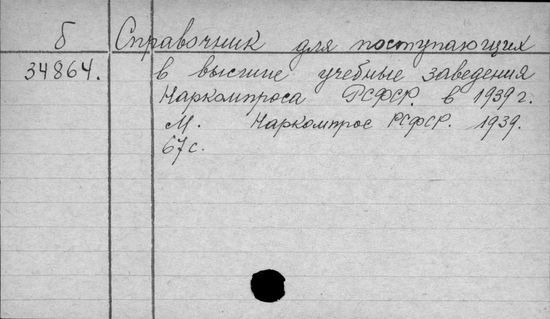 б Справочник для поступающих
34864. в высшие учебные заведения
Наркомпроса РСФСР. в 1939 г.
М. Наркомпрос РСФСР. 1939.
67 с.